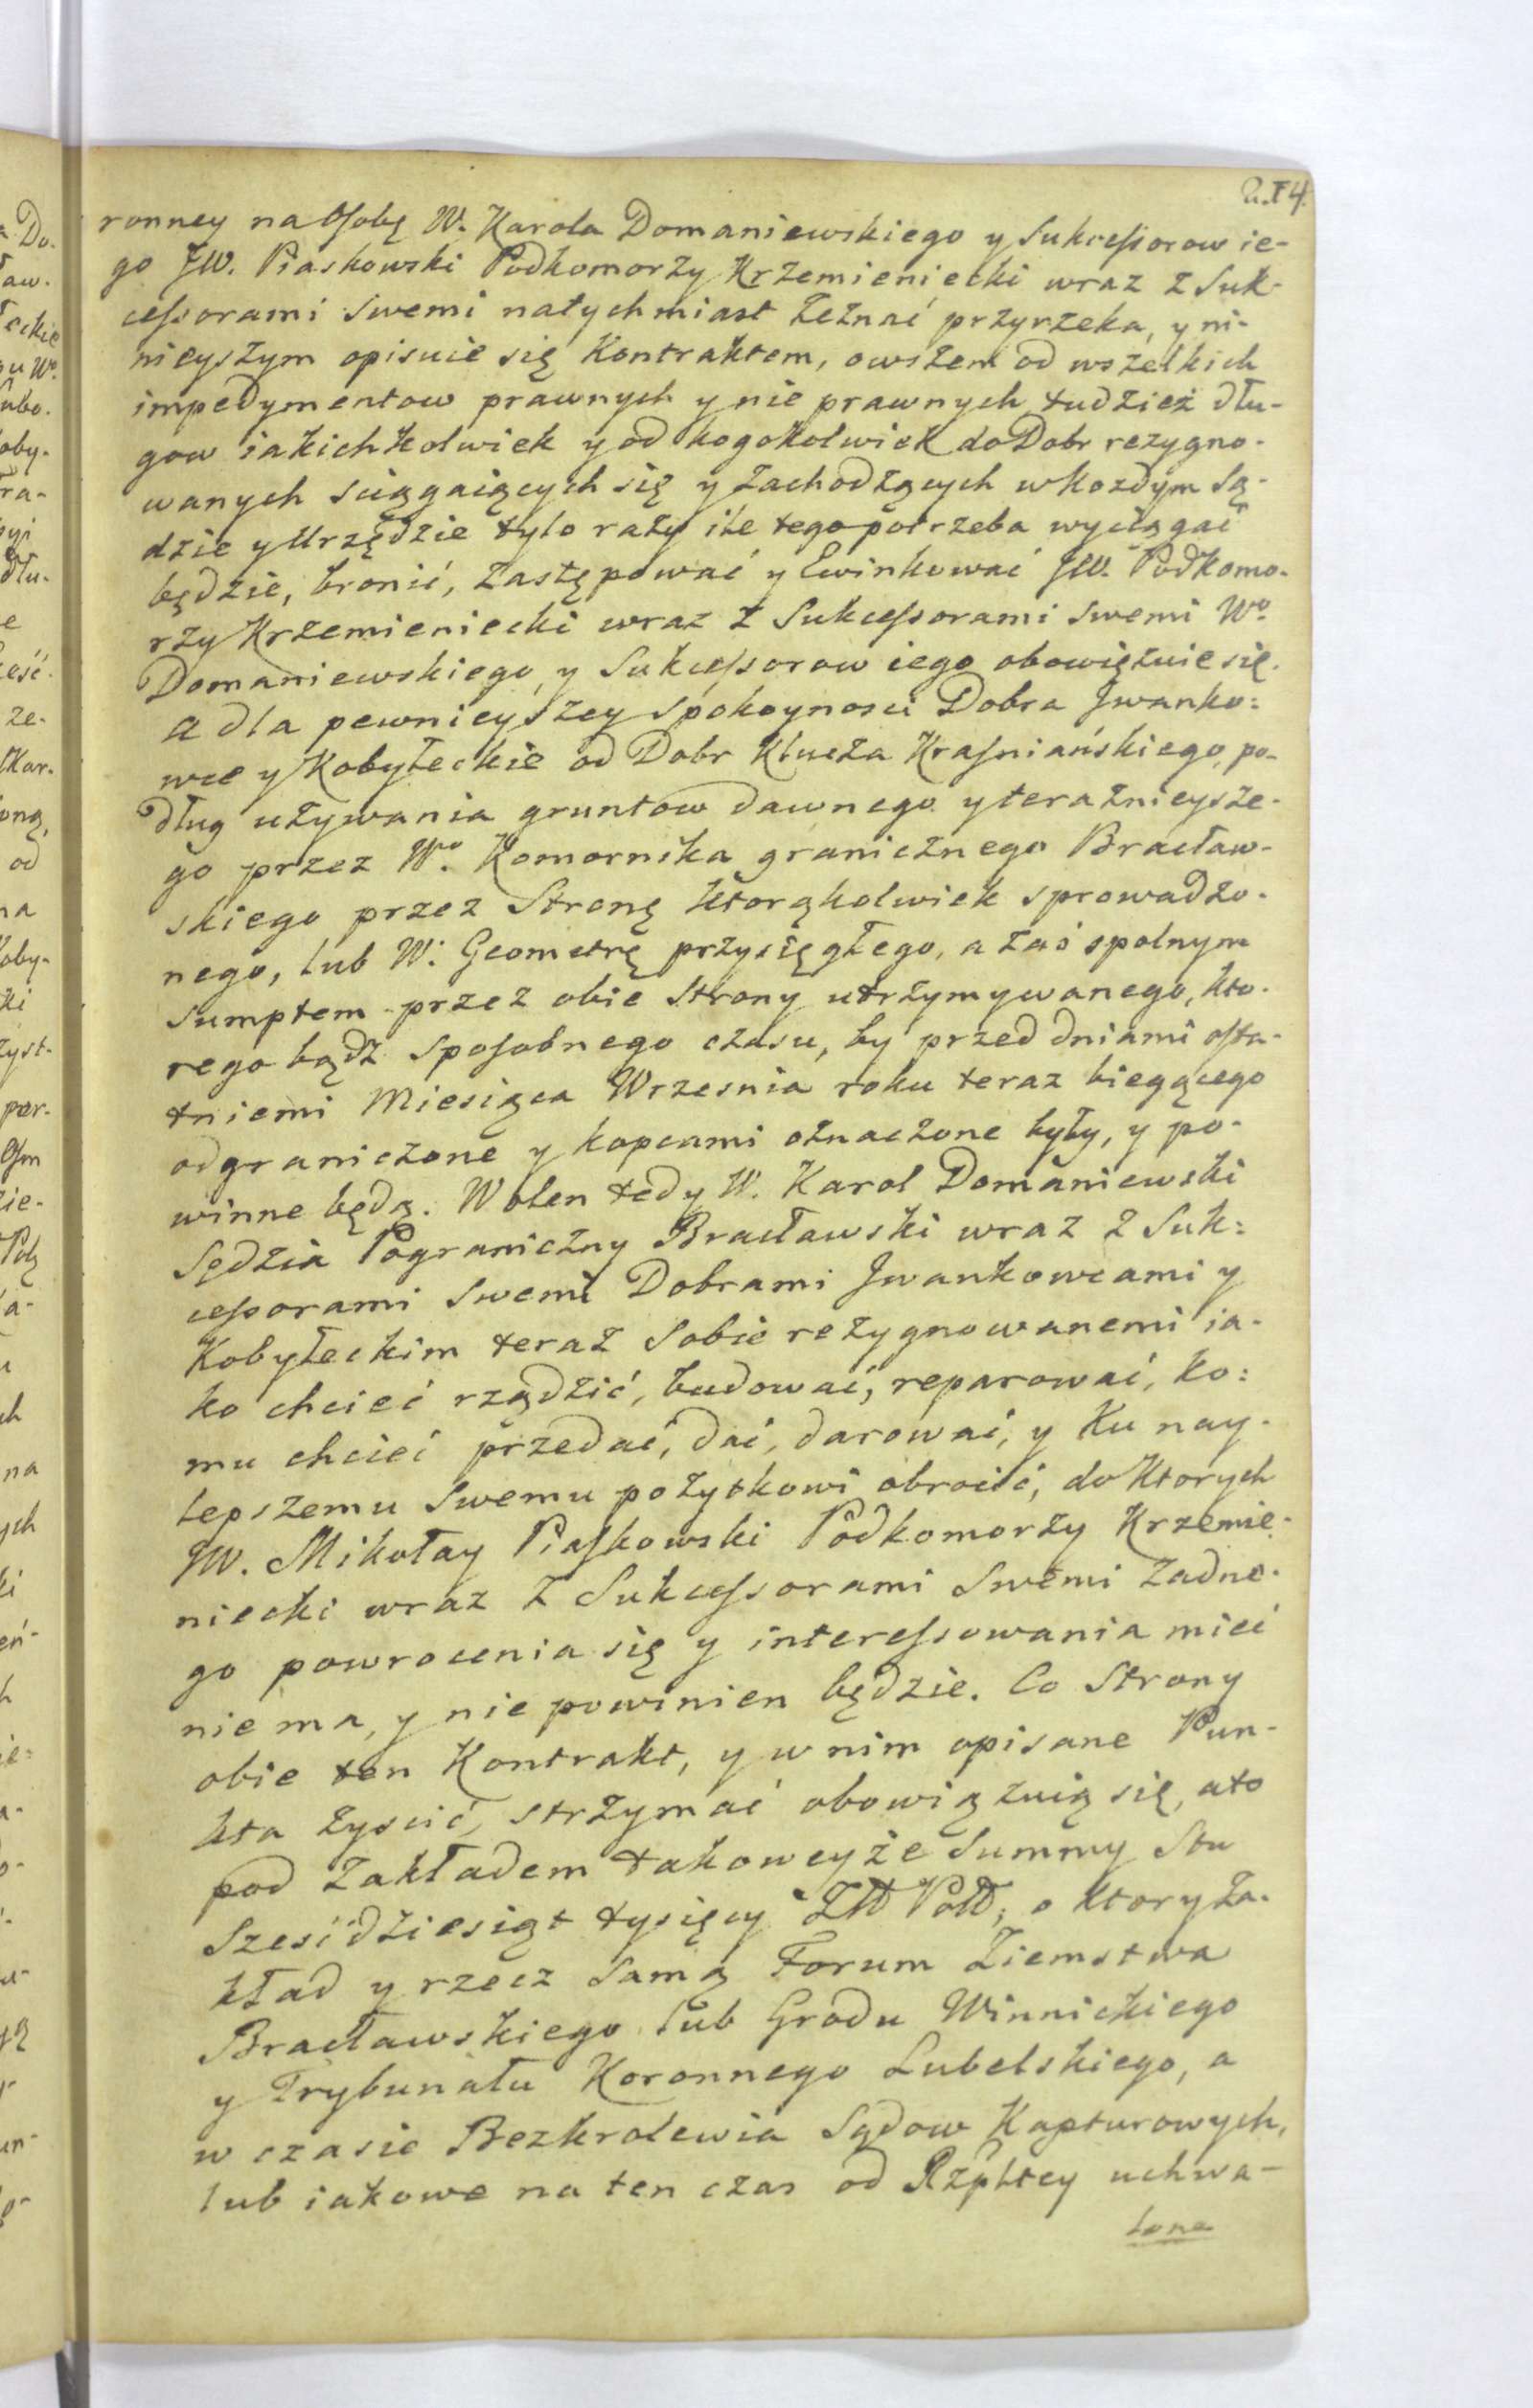 ronney na Osobę W. Karola Domaniewskiego y Sukcessorow ie-
go JW. Piaskowski Podkomorzy Krzemieniecki wraz z Suk-
cessorami Swemi natychmiast zeznać przyrzeka, y ni-
nieyszym opisuie się Kontraktem, owszem od wszelkich
impedymentow prawnych y nie prawnych tudzież dłu-
gow iakichkolwiek y od kogokolwiek do Dobr rezygno-
wanych sciągaiących się y zachodzących w każdym Są-
dzie y Urzędzie tylo razy ile tego potrzeba wyciągać
będzie, bronić, zastępować y Ewinkować JW. Podkomo-
rzy Krzemieniecki wraz z Sukcessorami Swemi Wo.
Domaniewskiego, y Sukcessorow iego obowięzuie się.
a dla pewnieyszey spokoynosci Dobra Jwanko=
wce y Kobyłeckie od Dobr Klucza Krasniańskiego, po-
dług używania gruntow dawnego y teraznieysze-
go przez Wo. Komornika granicznego Bracław-
skiego przez Stronę ktorąkolwiek sprowadzo-
nego, lub W. Geometrę przysięgłego, a zaś spolnym
sumptem przez obie Strony utrzymywanego, kto-
rego bądź sposobnego czasu, by przed dniami osta-
tniemi Miesiąca Wrzesnia roku teraz biegącego
odgraniczone y kopcami oznaczone były, y po-
winne będą. Wolen tedy W. Karol Domaniewski
Sędzia Pograniczny Bracławski wraz z Suk=
cessorami Swemi Dobrami Jwankowcami y
Kobyłeckim teraz Sobie rezygnowanemi ia-
ko chcieć rządzić, budować, reparować, ko=
mu chcieć przedać, dać, darować, y Ku nay-
lepszemu Swemu pożytkowi obrocić, do Ktorych
JW. Mikołay Piaskowski Podkomorzy Krzemie-
niecki wraz z Sukcessorami Swemi zadne-
go powrocenia się y interessowania mieć
nie ma, y nie powinien będzie. Co Strony
obie ten Kontrakt, y w nim opisane Pun-
kta zyscić, strzymać obowiązuią się, a to
pod Zakładem takoweyże Summy Stu
Sześćdziesiąt tysięcy Złł Poll; o Ktory za-
kład y rzecz Samą Forum Ziemstwa
Bracławskiego lub Grodu Winnickiego
y Trybunału Koronnego Lubelskiego, a
w czasie Bezkrolewia Sądow Kapturowych,
lub iakowe na ten czas od Rzpltey uchwa-
lone